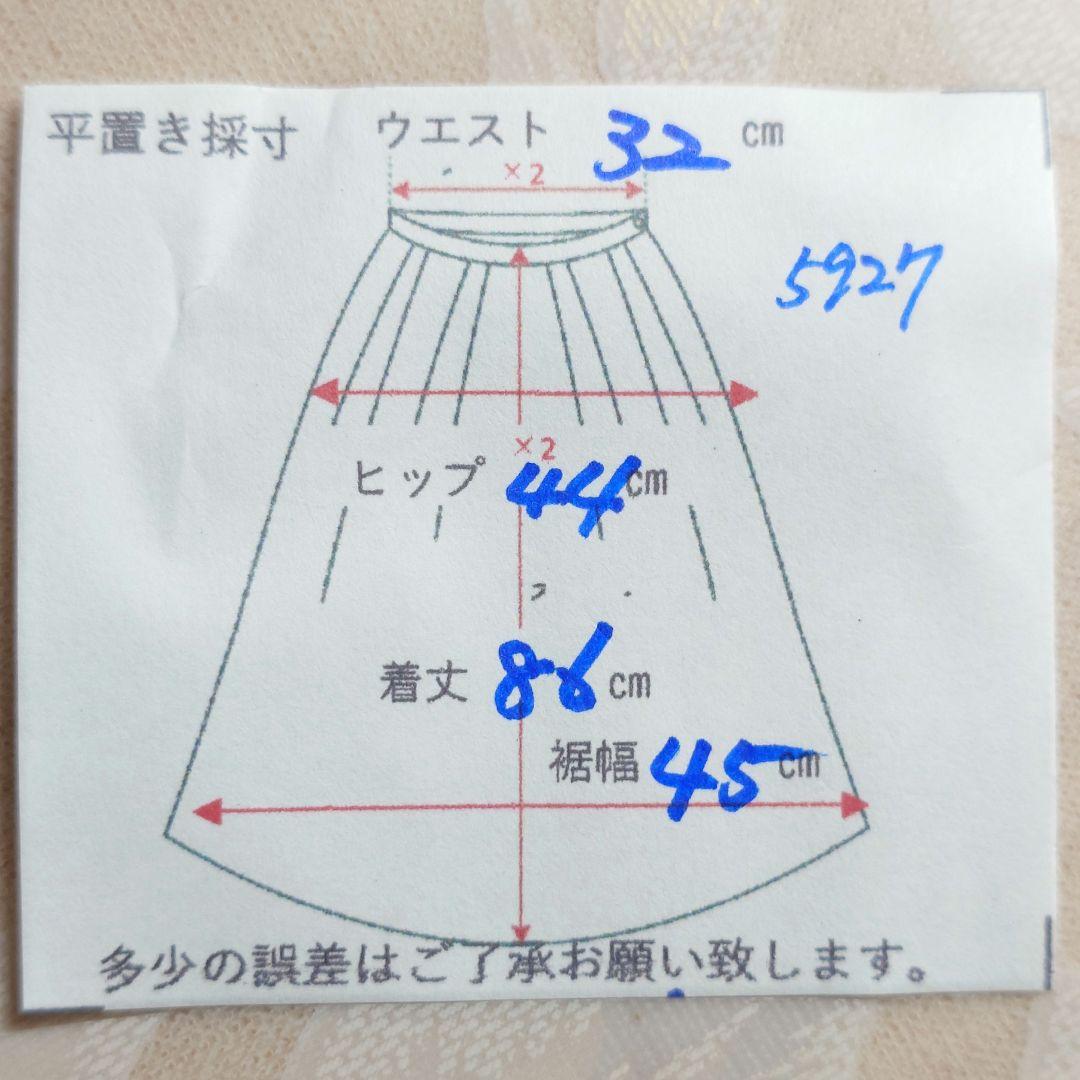 平置き採寸 ウエスト 32 cm
×2
5927
×2
ヒップ 44 cm
着丈 86 cm
裾幅 45 cm
多少の誤差はご了承お願い致します。